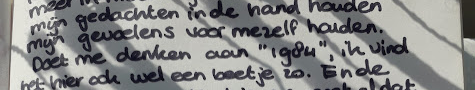 mijn gedachten in de hand houden
mijn gevoelens voor mezelf houden.
Doet me denken aan "1984", ik vind
het hier ook wel een beetje zo. En de